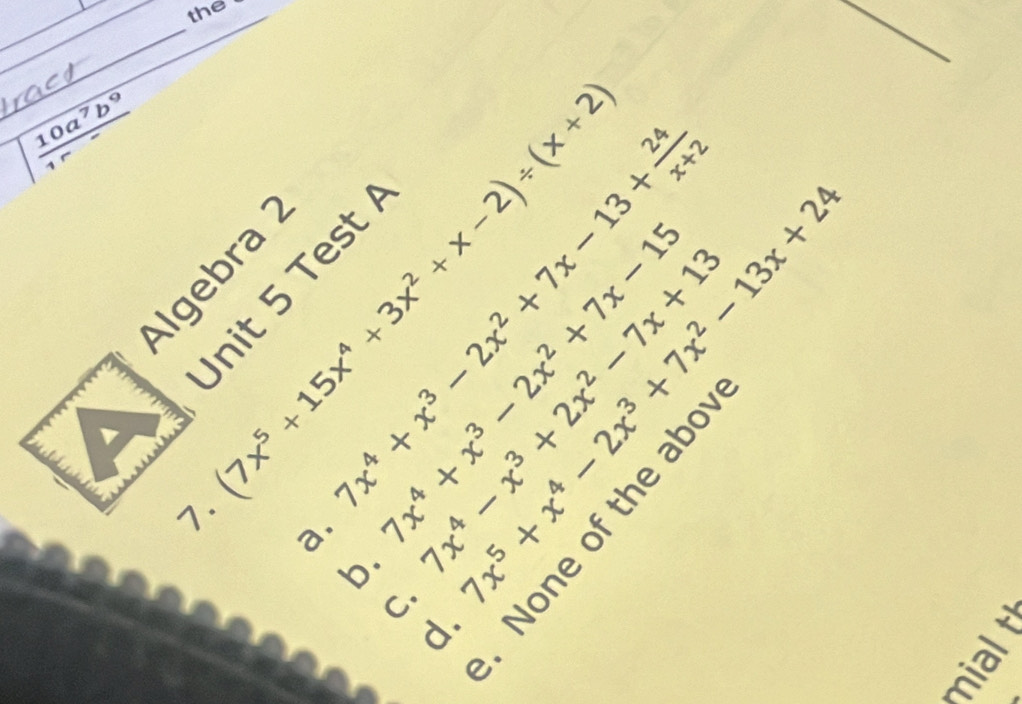 the
tract
10a⁷b⁹
A
Algebra 2
Unit 5 Test A
7. (7x⁵ + 15x⁴ + 3x² + x − 2) ÷ (x + 2)
a. 7x⁴ + x³ − 2x² + 7x − 13 + 24/x+2
b. 7x⁴ + x³ − 2x² + 7x − 15
c. 7x⁴ − x³ + 2x² − 7x + 13
d. 7x⁵ + x⁴ − 2x³ + 7x² − 13x + 24
e. None of the above
mial th